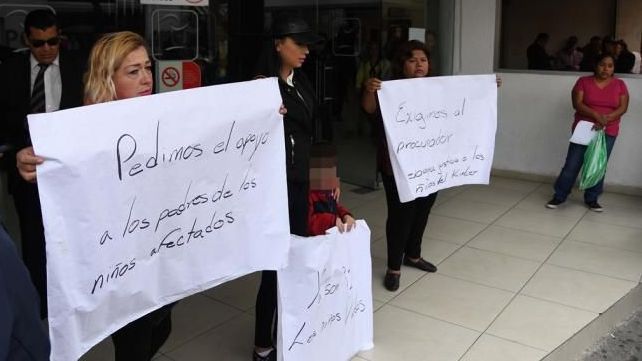 Pedimos el apoyo
a los padres de los
niños afectados
Exigimos al
procurador
justicia a los
niños del Kinder
Los niños